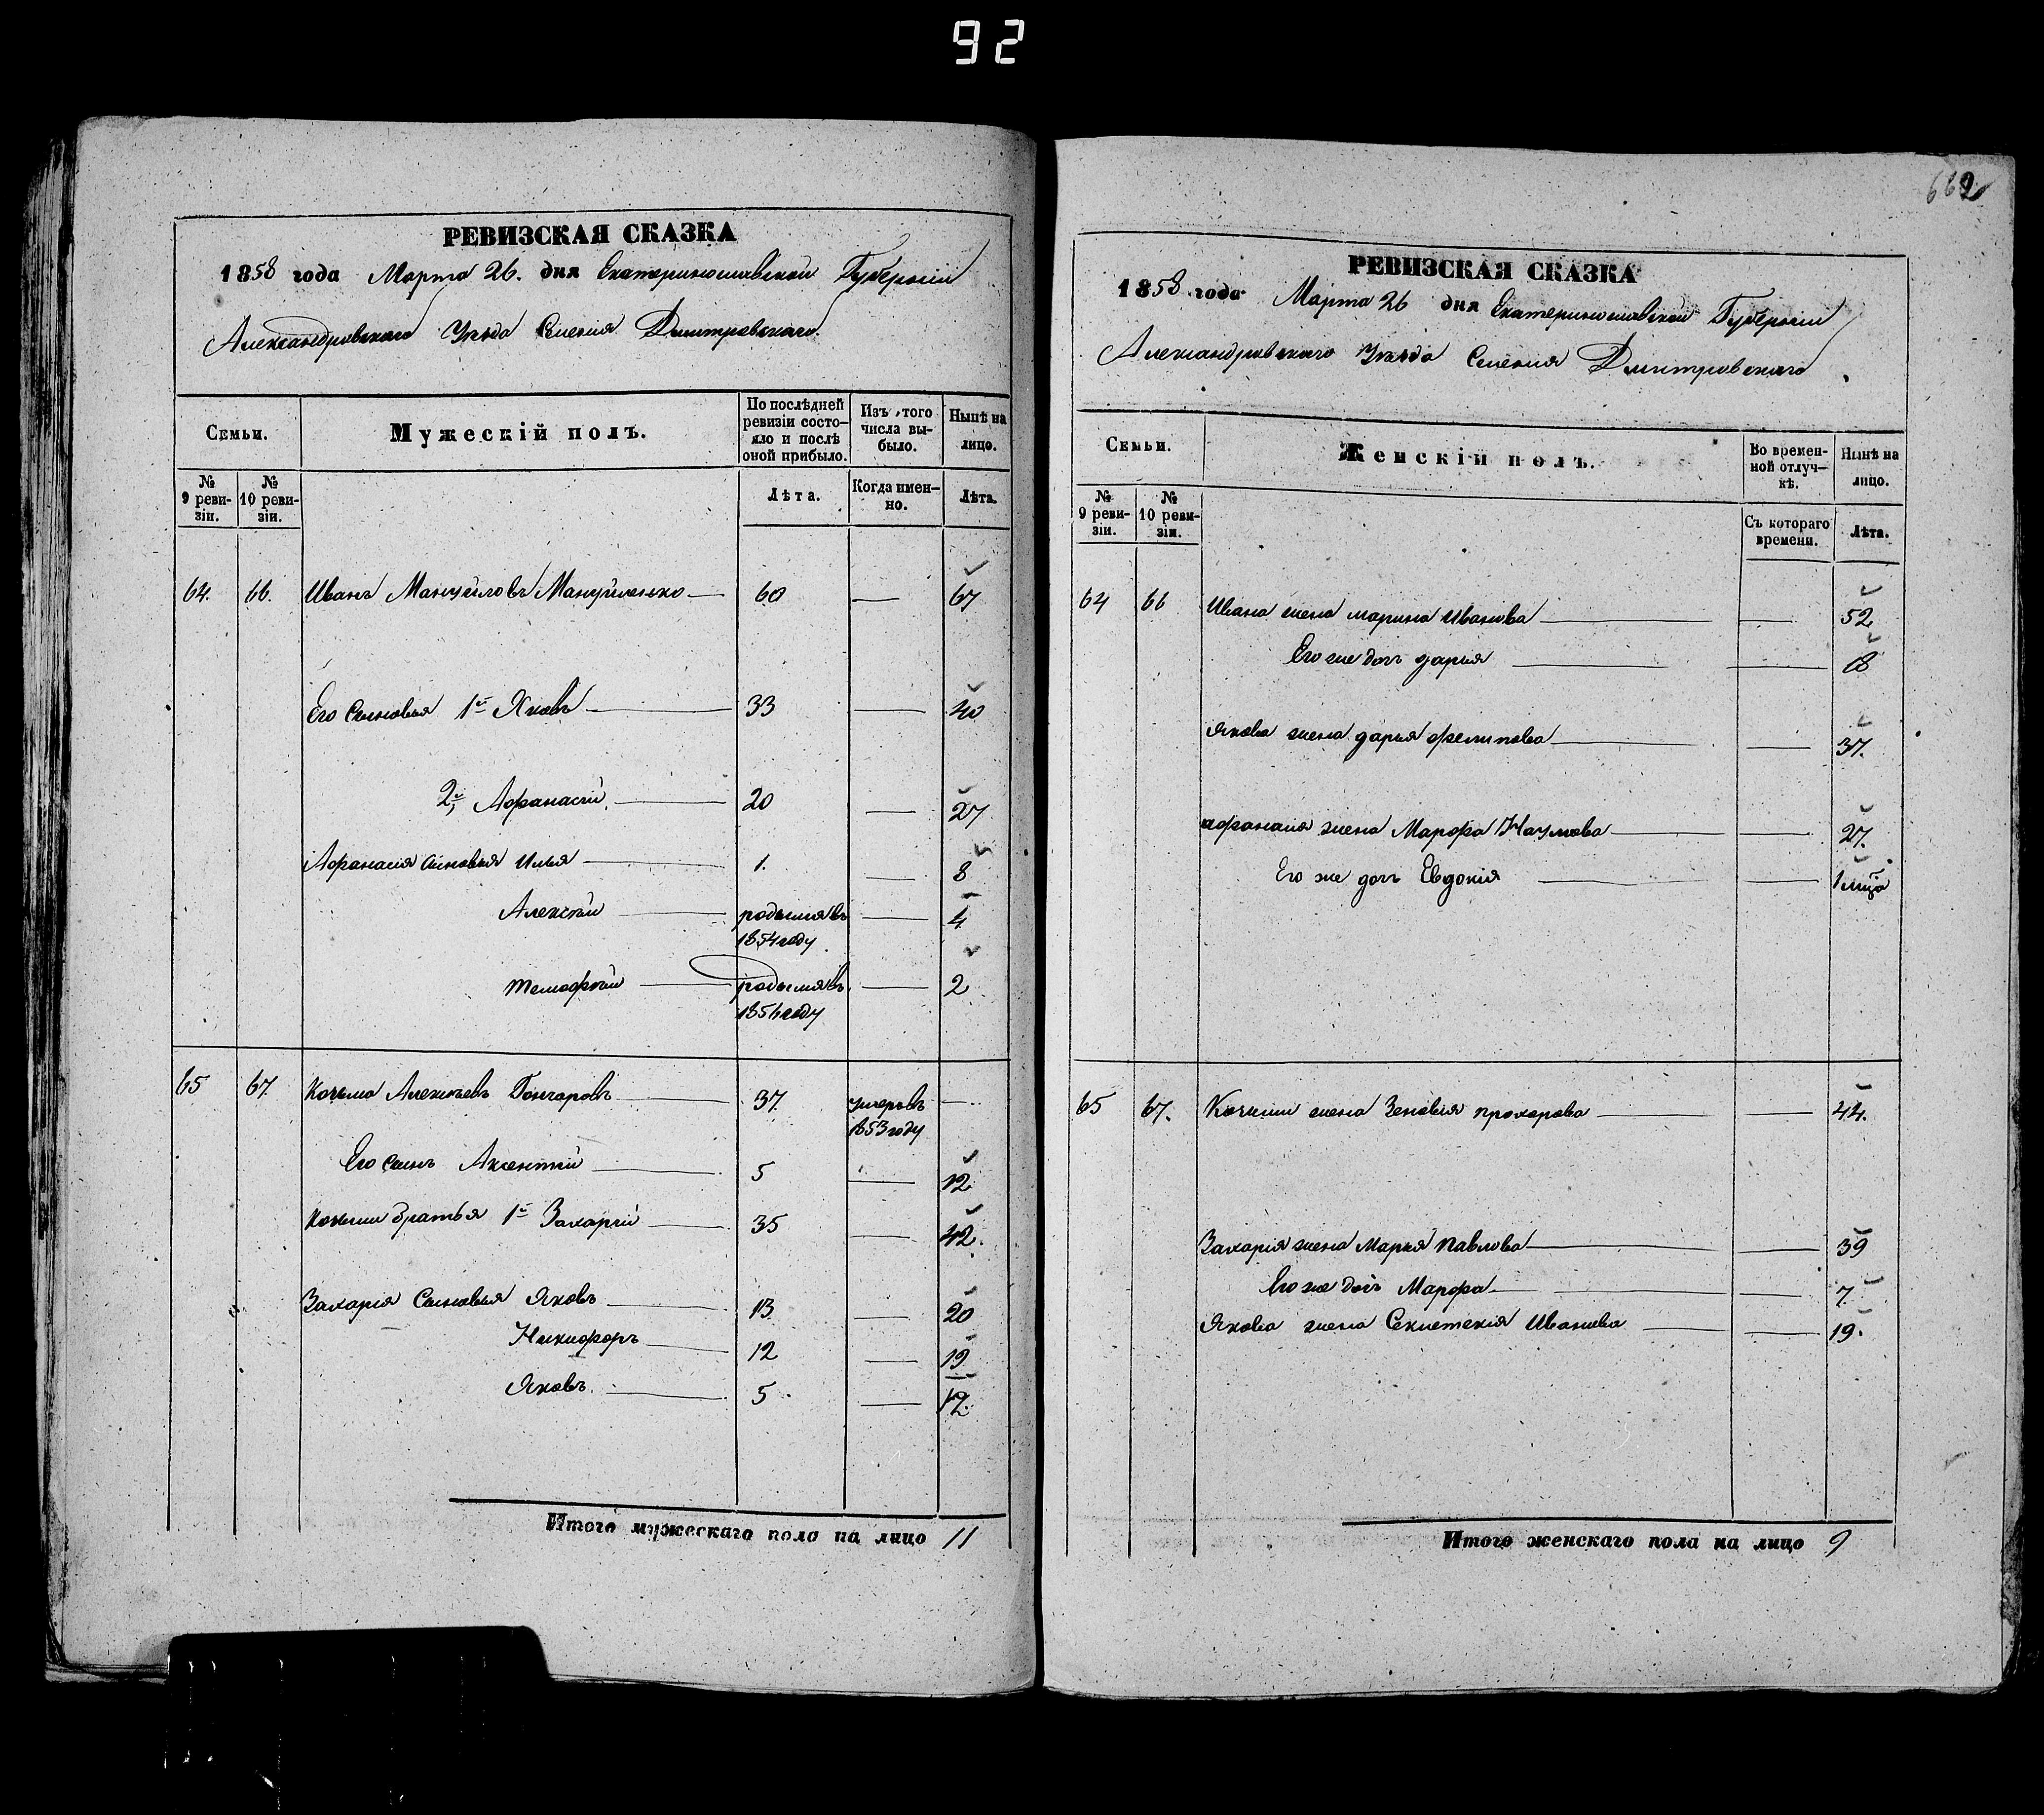 92
РЕВИЗСКАЯ СКАЗКА
1858 года Марта 26. дня Екатеринославской Губернiи
Александровского Уезда Селения Дмитровского
Семьи.
Мужескій полъ.
По послѣдней ревизіи состо-яло и послѣ оной прибыло.
Изъ этого числа вы-было.
Нынѣ на лицо.
№ 9 реви-зіи.
№ 10 реви-зіи.
Лѣта.
Когда имен-но.
Лѣта.
64. 66. Иванъ Мануйловъ Мануйленко 60 — 67
Его Сыновья 1й Яковъ 33 — 40
2й Афанасій 20 — 27
Афанасия сыновья Илья 1. — 8
Алексѣй родился въ 1854 году — 4
Тимофѣй родился въ 1856 году — 2
65 67. Козьма Алексѣевъ Гончаровъ 37. умеръ въ 1853 году —
Его сынъ Аксентій 5 — 12
Козьми братья 1й Захарій 35 — 42.
Захария Сыновья Яковъ 13 — 20
Никифоръ 12 — 19
Яковъ 5 — 12.
Итого мужескаго пола на лицо 11
662
РЕВИЗСКАЯ СКАЗКА
1858 года Марта 26 дня Екатеринославской Губернiи
Александровскаго Уезда Селения Дмитровскаго
Семьи.
Женскій полъ.
Во времен-ной отлуч-кѣ.
Нынѣ на лицо.
№ 9 реви-зіи.
№ 10 реви-зіи.
Съ котораго времени.
Лѣта.
64 66 Ивана жена марина Иванова — 52
Его же дочь дарья — 18
Якова жена дарья филипова — 37.
афанасия жена Марфа Наумова — 27.
Его же дочь Евдокія — 1 мѣца
65 67. Козьми жена Зеновия прохорова — 44.
Захарія жена Марья Павлова — 39
Его же дочь Марфа — 7.
Якова жена Иванова — 19.
Итого женскаго пола на лицо 9